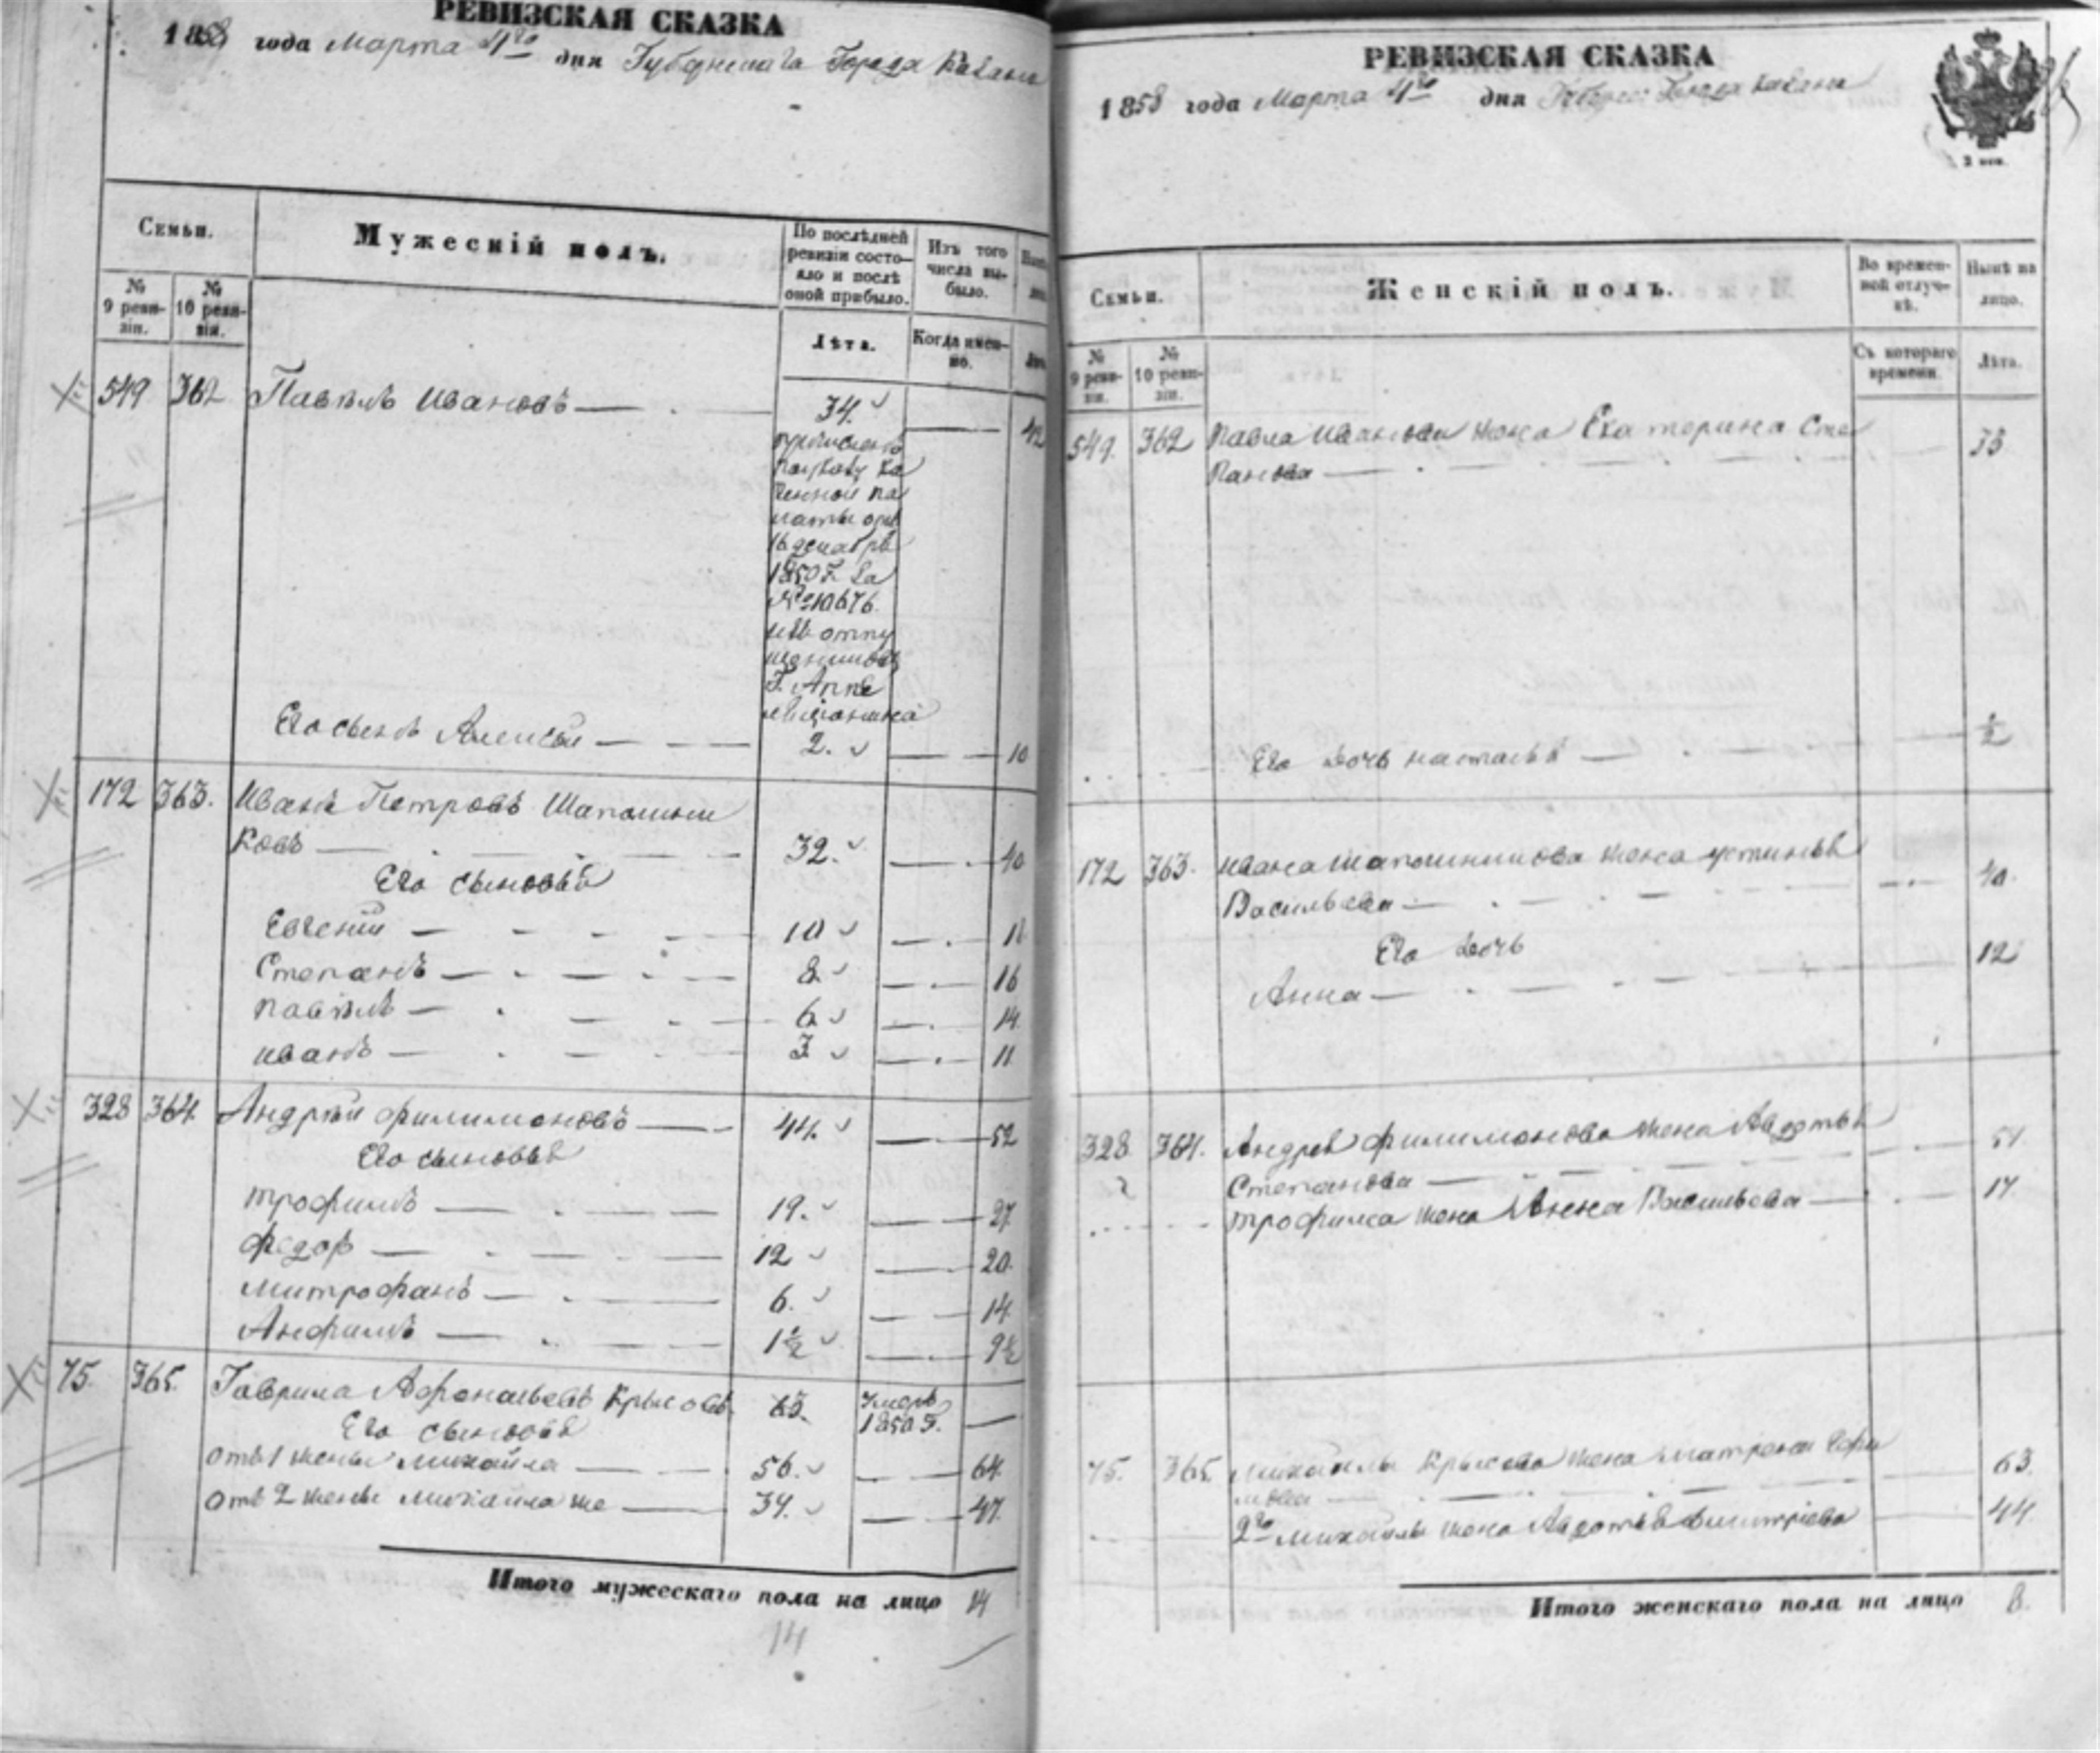 РЕВИЗСКАЯ СКАЗКА
1858 года Марта 4го дня Губернскаго Города Казани
Семьи.
Мужескій полъ.
По послѣдней ревизіи состояло и послѣ оной прибыло.
Изъ того числа выбыло.
№ 9 ревизіи.
№ 10 ревизіи.
Лѣта.
Когда именно.
549 362 Павелъ Ивановъ — 34. — 42
причисленъ
по указу Ка
зенной Па
латы отъ
16 декабря
1850 г. за
№ 10676.
изъ отпу
щенниковъ
Г.
Его сынъ Алексѣй — 2. — 10
172 363. Иванъ Петровъ Шапошни
ковъ — 32. — 40
Его сыновья
Евгеній — 10 — 18
Степанъ — 8. — 16
Павелъ — 6 — 14
Иванъ — 3 — 11
328 364. Андрей Филимоновъ — 44. — 52
Его сыновья
Трофимъ — 19. — 27.
Федор — 12 — 20.
Митрофанъ — 6. — 14.
Анфимъ — 1½ — 9½
75. 365. Гаврила Афонасьевъ Крысовъ. 63. Умеръ 1850 г. —
Его сыновья
отъ 1 жены Михайла — 56. — 64.
отъ 2 жены Михайла же — 39. — 47.
Итого мужескаго пола на лицо 14
14
РЕВИЗСКАЯ СКАЗКА
1858 года Марта 4го дня Города Казани
2 коп.
Семьи.
Женскій полъ.
Во временной отлучкѣ.
Нынѣ на лицо.
№ 9 ревизіи.
№ 10 ревизіи.
Съ котораго времени.
Лѣта.
549. 362 Павла Иванова жена Екатерина Сте
панова — 33
Его дочь Настасья — ½
172 363. Ивана Шапошникова жена Устинья
Васильева — 40.
Его дочь
Анна — 12
328 364. Андрея Филимонова жена Авдотья
Степанова — 51
Трофима жена Анна Васильева — 17.
75. 365. Михайлы Крысова жена Матрена Ефи
мова — 63.
2го Михайлы жена Авдотья Дмитріева — 44
Итого женскаго пола на лицо 8.